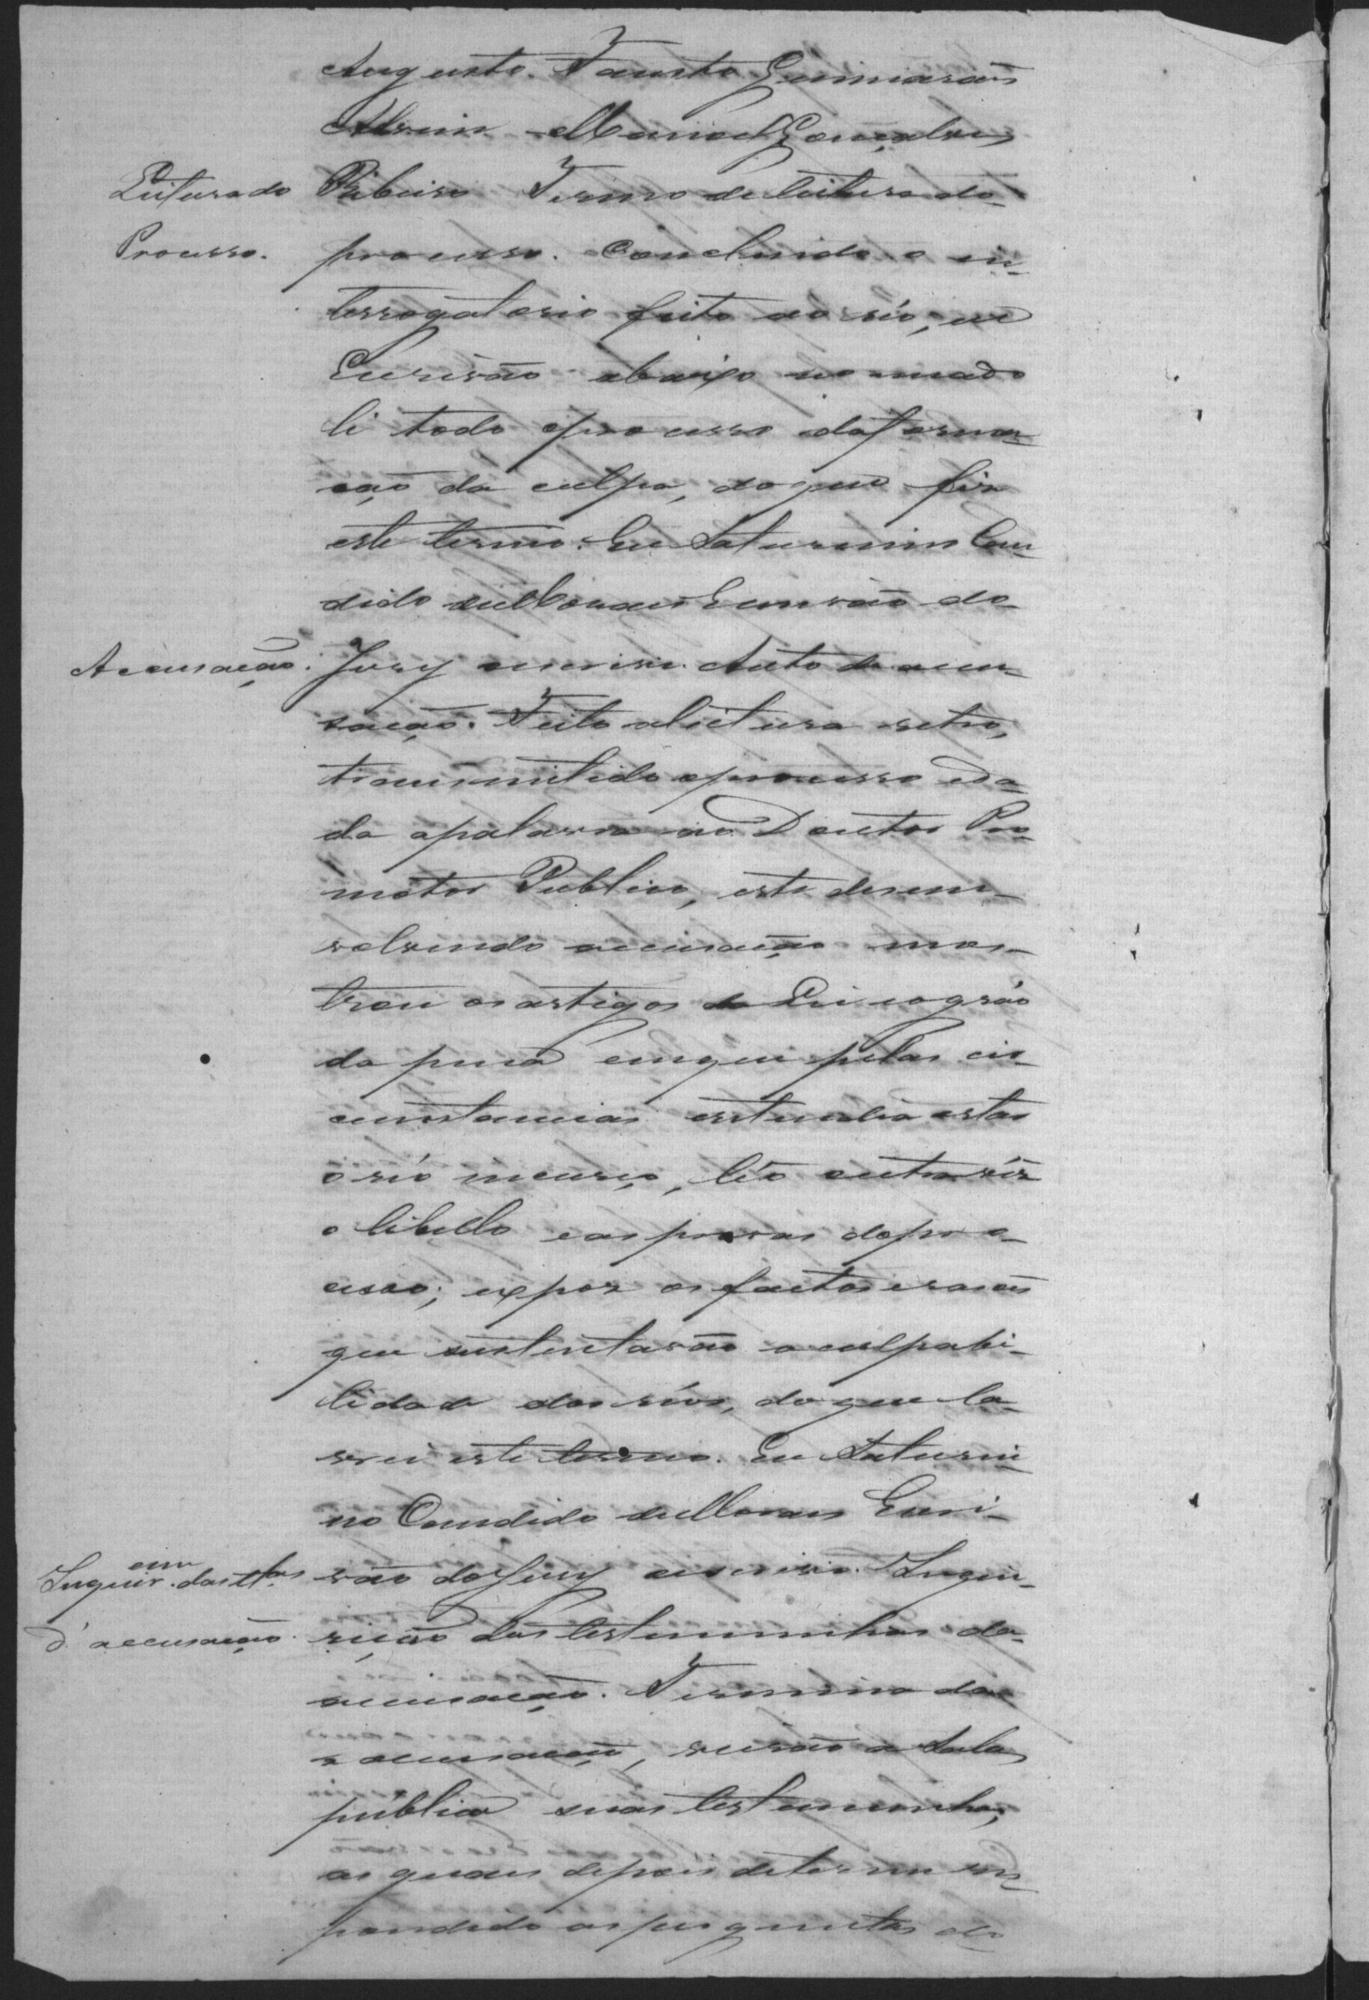 Augusto. Fausto Guimarães
Alvim Manoel Gonçalves
Leitura do Ribeiro Termo de leitura do
Processo. processo. Concluido o in-
terrogatorio feito ao réo, eu
Escrivão abaixo nomeado
li todo o processo da forma-
ção da culpa, do que fiz
este termo. Eu Saturnino Can-
dido de Moraes Escrivão do
Accusação. Jury escrevi. Auto de accu-
sação. Feito a leitura retro,
transmittido o processo e da-
da a palavra ao Doutor Pro-
motor Publico, este desen-
volvendo accusação mos-
trou os artigos da Lei e o gráo
da pena em que pelas cir-
cunstancias entendia estar
o réo incurso, léo outra vez
o libello e as provas do pro-
cesso; expoz os factos e rasões
que sustentavão a culpabi-
lidade dos réos, do que la-
vrei este termo. Eu Saturni-
no Candido de Moraes Escri-
Inquir.em das tt.as vão do Jury escrevi. Inqui-
d'accusação. rição das testemunhas da
accusação. Termina da
a accusação, a Sala
publica suas testemunhas,
as quaes depois de terem res-
pondido as perguntas do